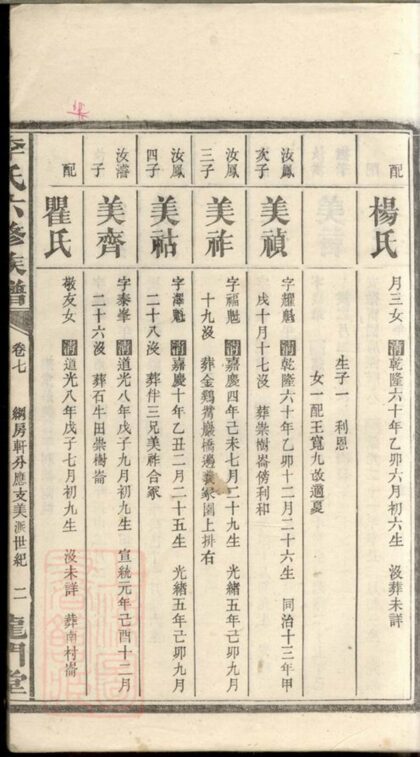 配
楊氏
月三女 清乾隆六十年乙卯六月初六生 沒葬未詳
生子一 利恩
女一配王寬九改適夏
汝鳳
次子
美禎
字耀魁 清乾隆六十年乙卯十二月二十六生 同治十三年甲
戌十月十七沒 葬崇樹崙傍利和
汝鳳
三子
美祚
字福魁 清嘉慶四年己未七月二十九生 光緒五年己卯九月
十九沒 葬金鷄鴬慶橋邊冢園上排右
汝鳳
四子
美祜
字澤魁 清嘉慶十年乙丑二月二十五生 光緒五年己卯九月
二十八沒 葬伴三兄美祚合冢
汝濬
子
美齊
字泰峯 清道光八年戊子九月初九生 宣統元年己酉十二月
二十六沒 葬石牛田崇樹崙
配
瞿氏
敬友女 清道光八年戊子七月初九生 沒未詳 葬南村崙
李氏六修族譜 卷七 綱房軒分應支美派世紀 二 龍門堂